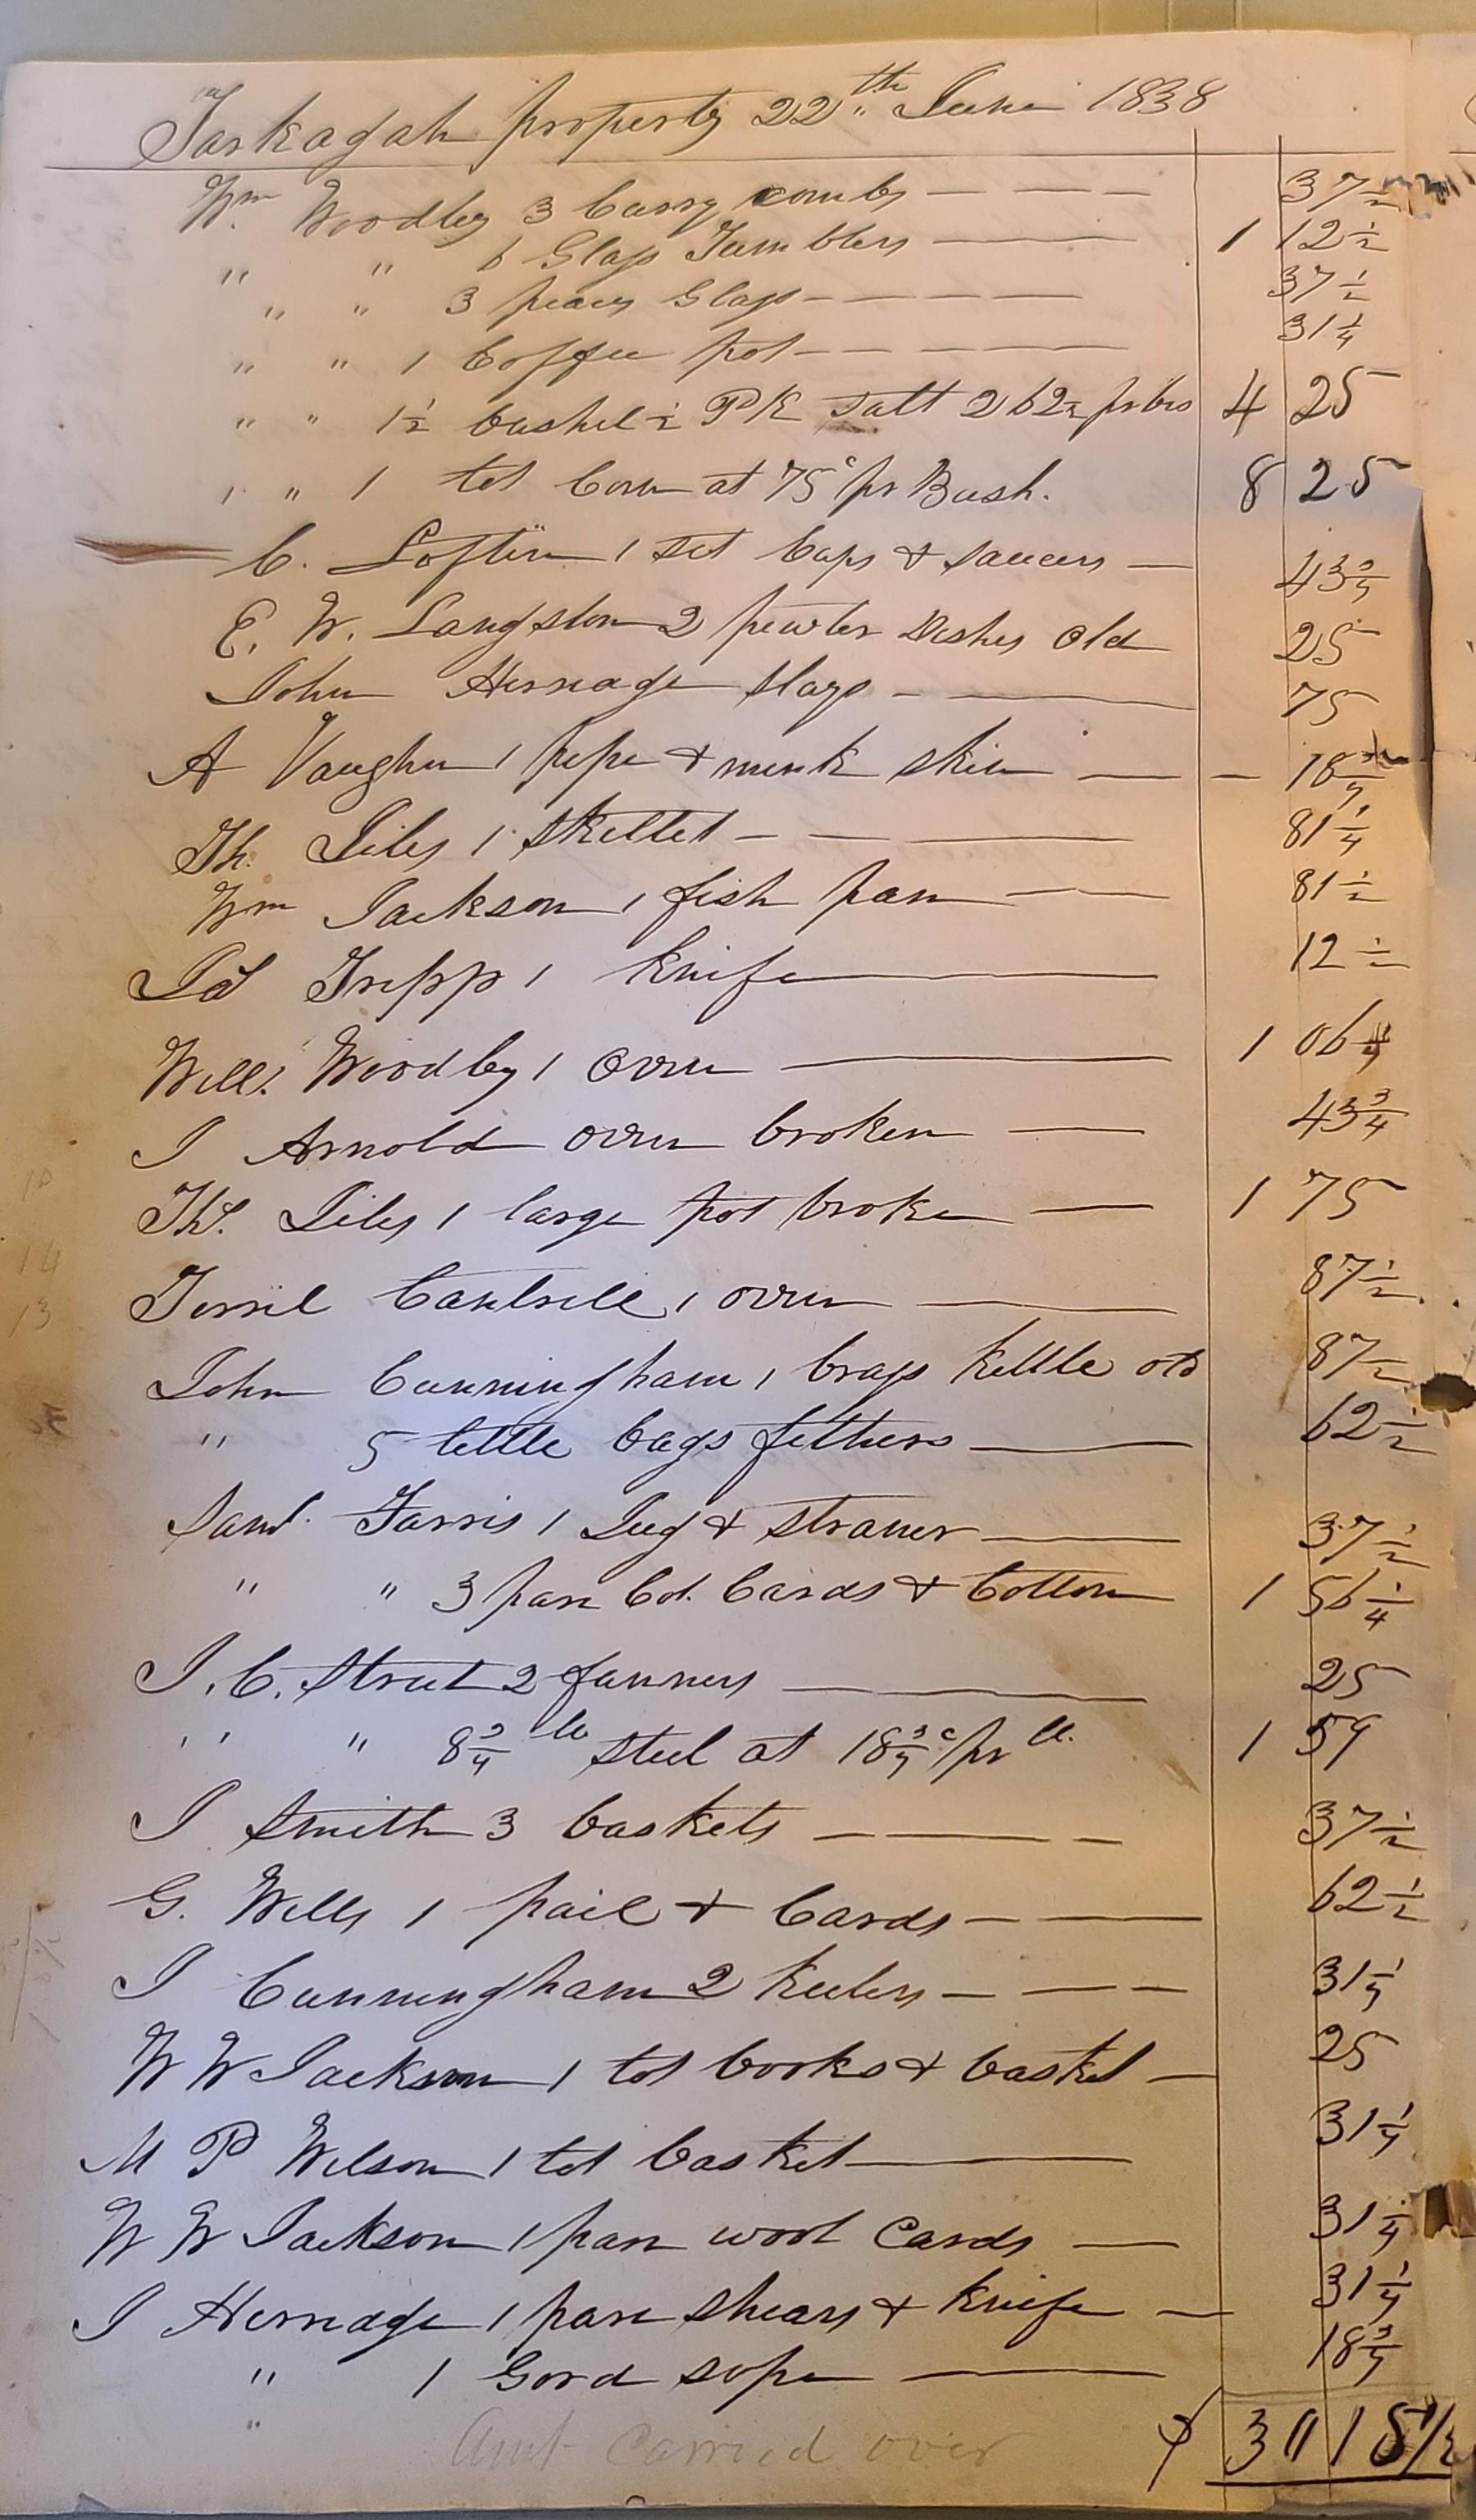 Taskagah property 22th June 1838
Wm Woodby 3 Curry combs — — — 37½
" " 6 Glass Tumblers — 1 12½
" " 3 peaces Glass — — — — 37½
" " 1 Coffee pot — — — — 31¼
" " 1½ bushel ½ PK salt 2 62½ pr bus 4 25
" " 1 lot Corn at 75c pr Bush. 8 25
C. Loftin 1 set Cups & saucers — 43¾
E. W. Langston 2 pewter Dishes old 25
John Hernage slays — — 75
A Vaughn 1 pipe & mink skin — — 18¾
Th. Liles 1 skillet — — — 81¼
Wm Jackson 1 fish pan — — 81½
Tripp 1 knife — 12½
Will. Woodby 1 oven — 1 06¼
J Arnold oven broken — 43¾
Ths. Liles 1 large pot broke — 1 75
Terril Cantrell 1 oven — 87½
John Cunningham 1 brass kettle old 87½
" 5 little bags fethers — 62½
Saml. Farris 1 Jug & straner — 37½
" " 3 pare Cot. Cards & Cotton 1 56¼
J. C. Street 2 fanners — 25
" " 8¾ lb steel at 18¾c pr lb. 1 59
J Smith 3 baskets — — — 37½
G. Wells 1 pail & Cards — — 62½
J Cunningham 2 keelers — — — 31¼
W W Jackson 1 lot books & basket — 25
M P Wilson 1 lot basket — 31¼
W W Jackson 1 pare wool Cards — 31¼
J Hernage 1 pare shears & knife — 31¼
" 1 Gord sope — 18¾
" Amt Carried over $ 30 18½